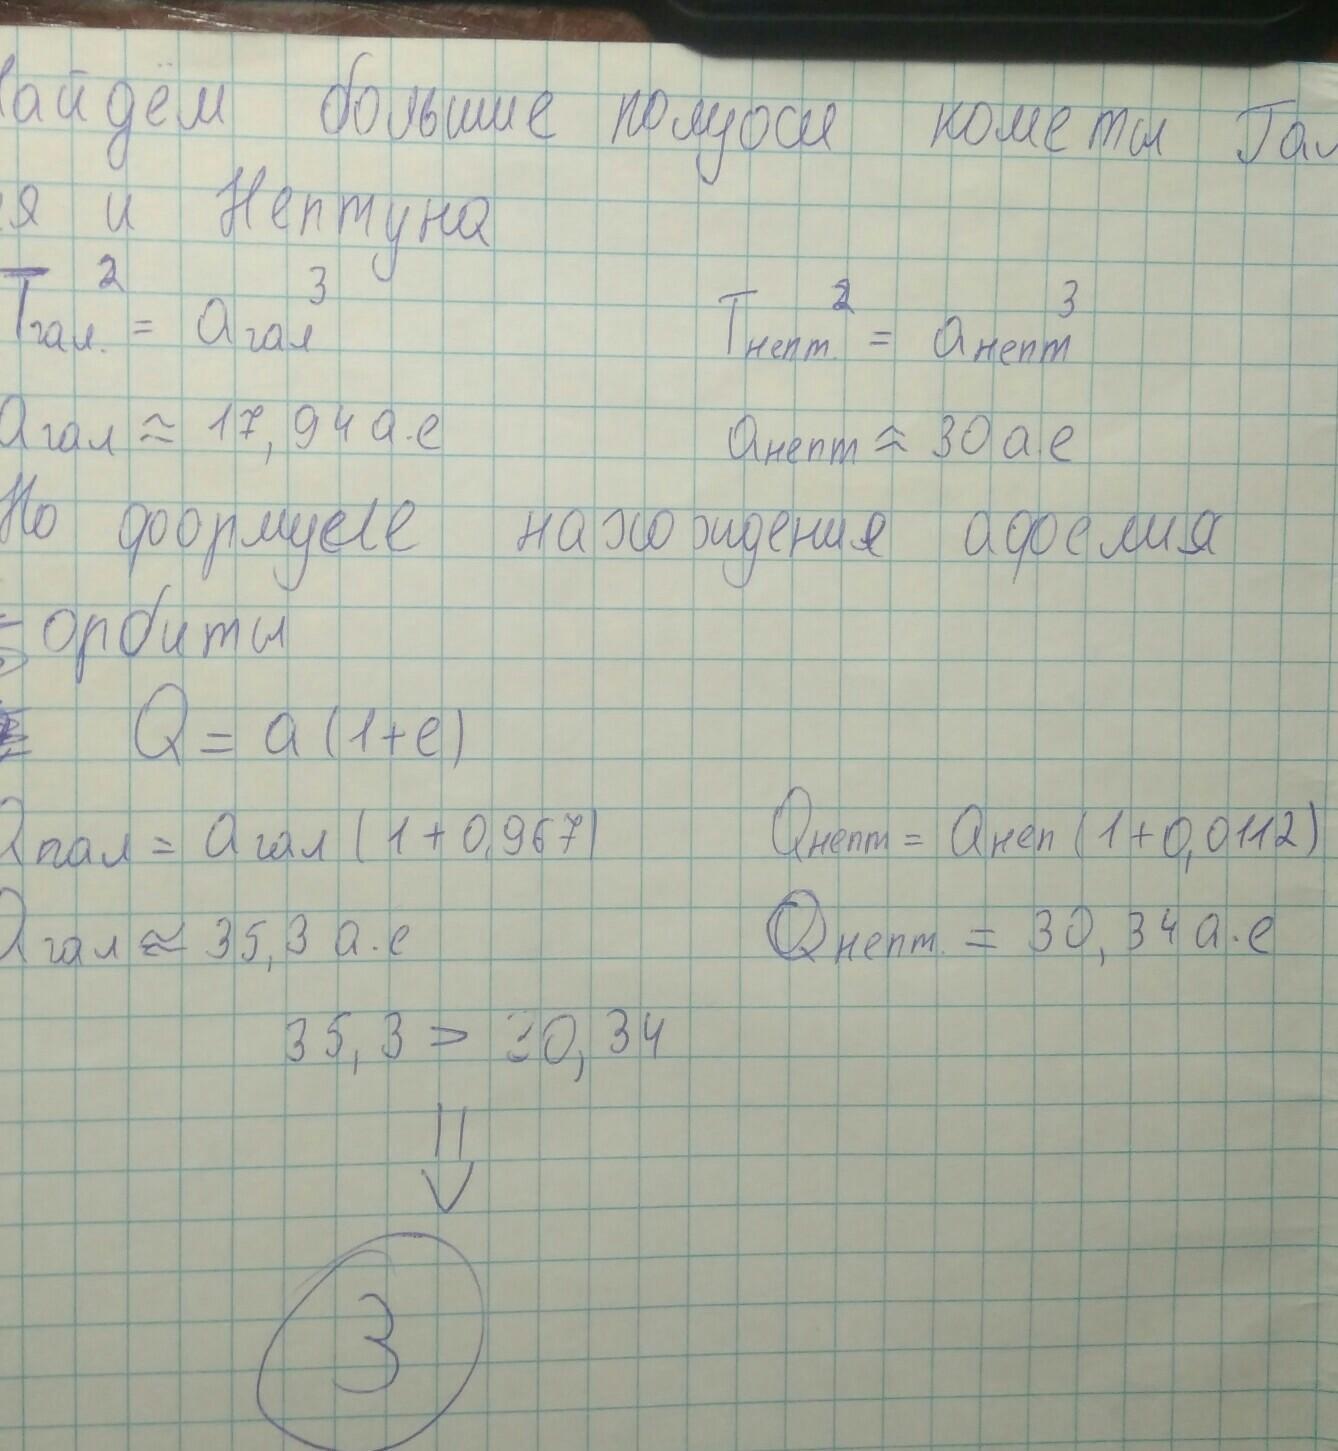 Найдём большие полуоси кометы Гал
ея и Нептуна
Tгал.² = aгал³ Tнепт.² = aнепт³
aгал ≈ 17,94 а.е aнепт ≈ 30 а.е
По формуле нахождения афелия
орбиты
Q = a(1+e)
Qгал = aгал(1+0,967) Qнепт = aнеп(1+0,0112)
Qгал ≈ 35,3 а.е Qнепт. = 30,34 а.е
35,3 > 30,34
⇓
3